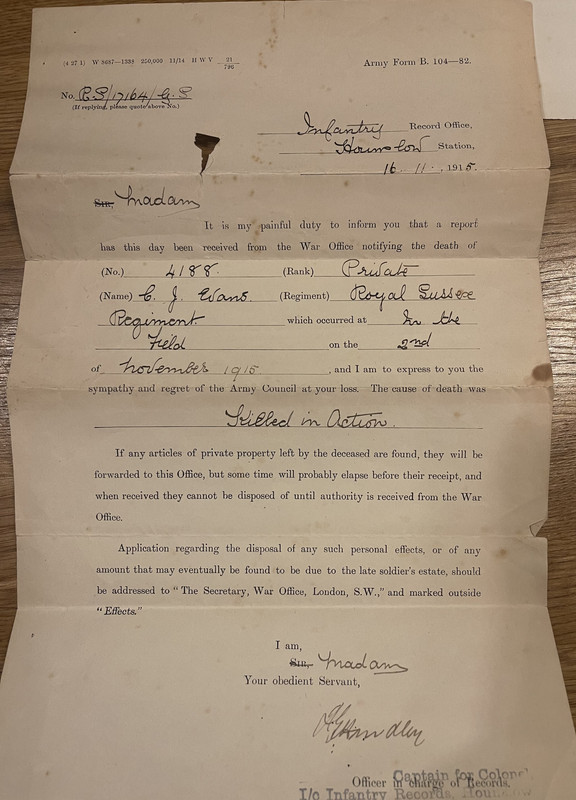 (4 27 1) W 8687—1338 250,000 11/14 H W V 21/796
Army Form B. 104—82.
No. R.S/17164/G.S
(If replying, please quote above No.)
Infantry Record Office,
Hounslow Station,
16 . 11 . 1915.
Sir, Madam
It is my painful duty to inform you that a report
has this day been received from the War Office notifying the death of
(No.) 4188. (Rank) Private
(Name) C. J. Evans. (Regiment) Royal Sussex
Regiment. which occurred at In the
Field on the 2nd
of November 1915, and I am to express to you the
sympathy and regret of the Army Council at your loss. The cause of death was
Killed in Action.
If any articles of private property left by the deceased are found, they will be
forwarded to this Office, but some time will probably elapse before their receipt, and
when received they cannot be disposed of until authority is received from the War
Office.
Application regarding the disposal of any such personal effects, or of any
amount that may eventually be found to be due to the late soldier's estate, should
be addressed to "The Secretary, War Office, London, S.W.," and marked outside
"Effects."
I am,
Sir, Madam
Your obedient Servant,
Officer in charge of Records.
Captain for Colonel
I/c Infantry Records, Hounslow